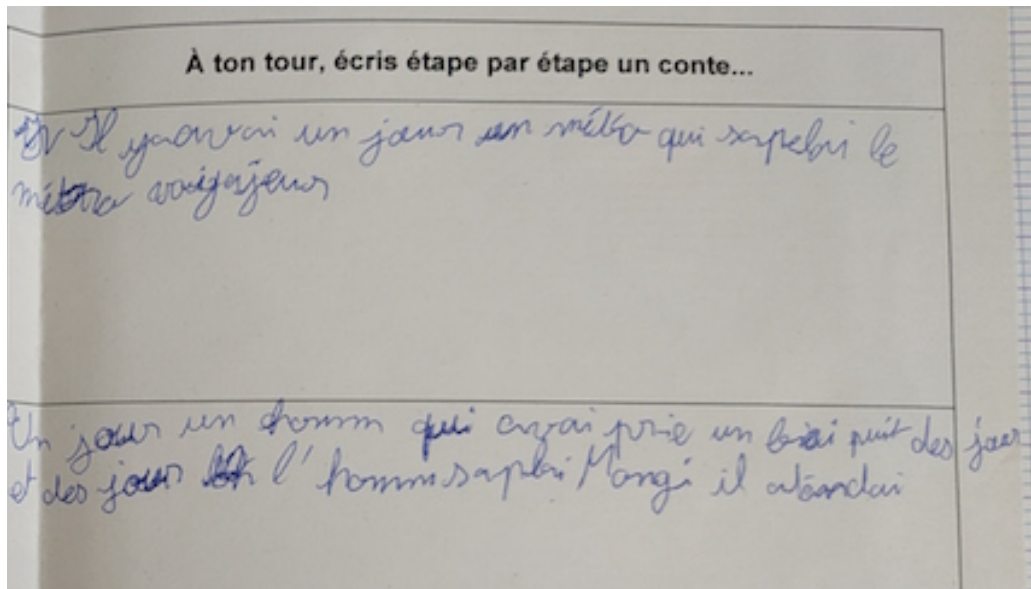 À ton tour, écris étape par étape un conte...
Il yaavrai un jour un métro qui sapelai le
métro voigajeur
Un jour un homm qui avrai prie un biai puit des jour
et des jour l'homm saplai Mongi il aténdai